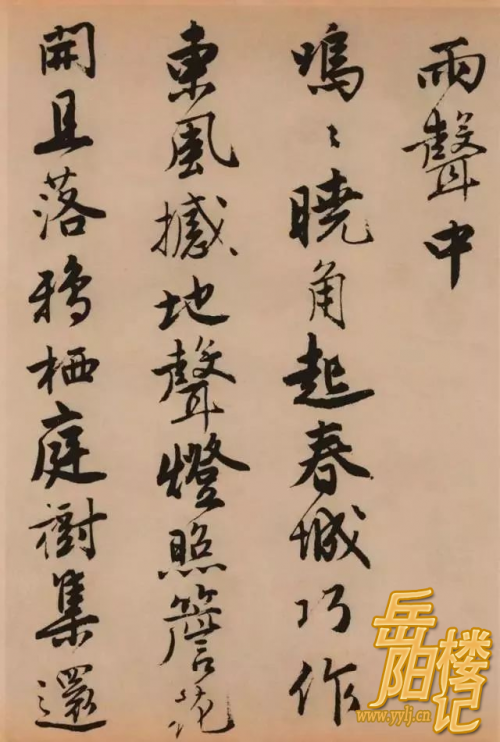 雨聲中
嗚〻曉角起春城巧作
東風撼地聲燈照簷花
開且落鴉栖庭樹集還
岳阳楼记
www.yylj.cn